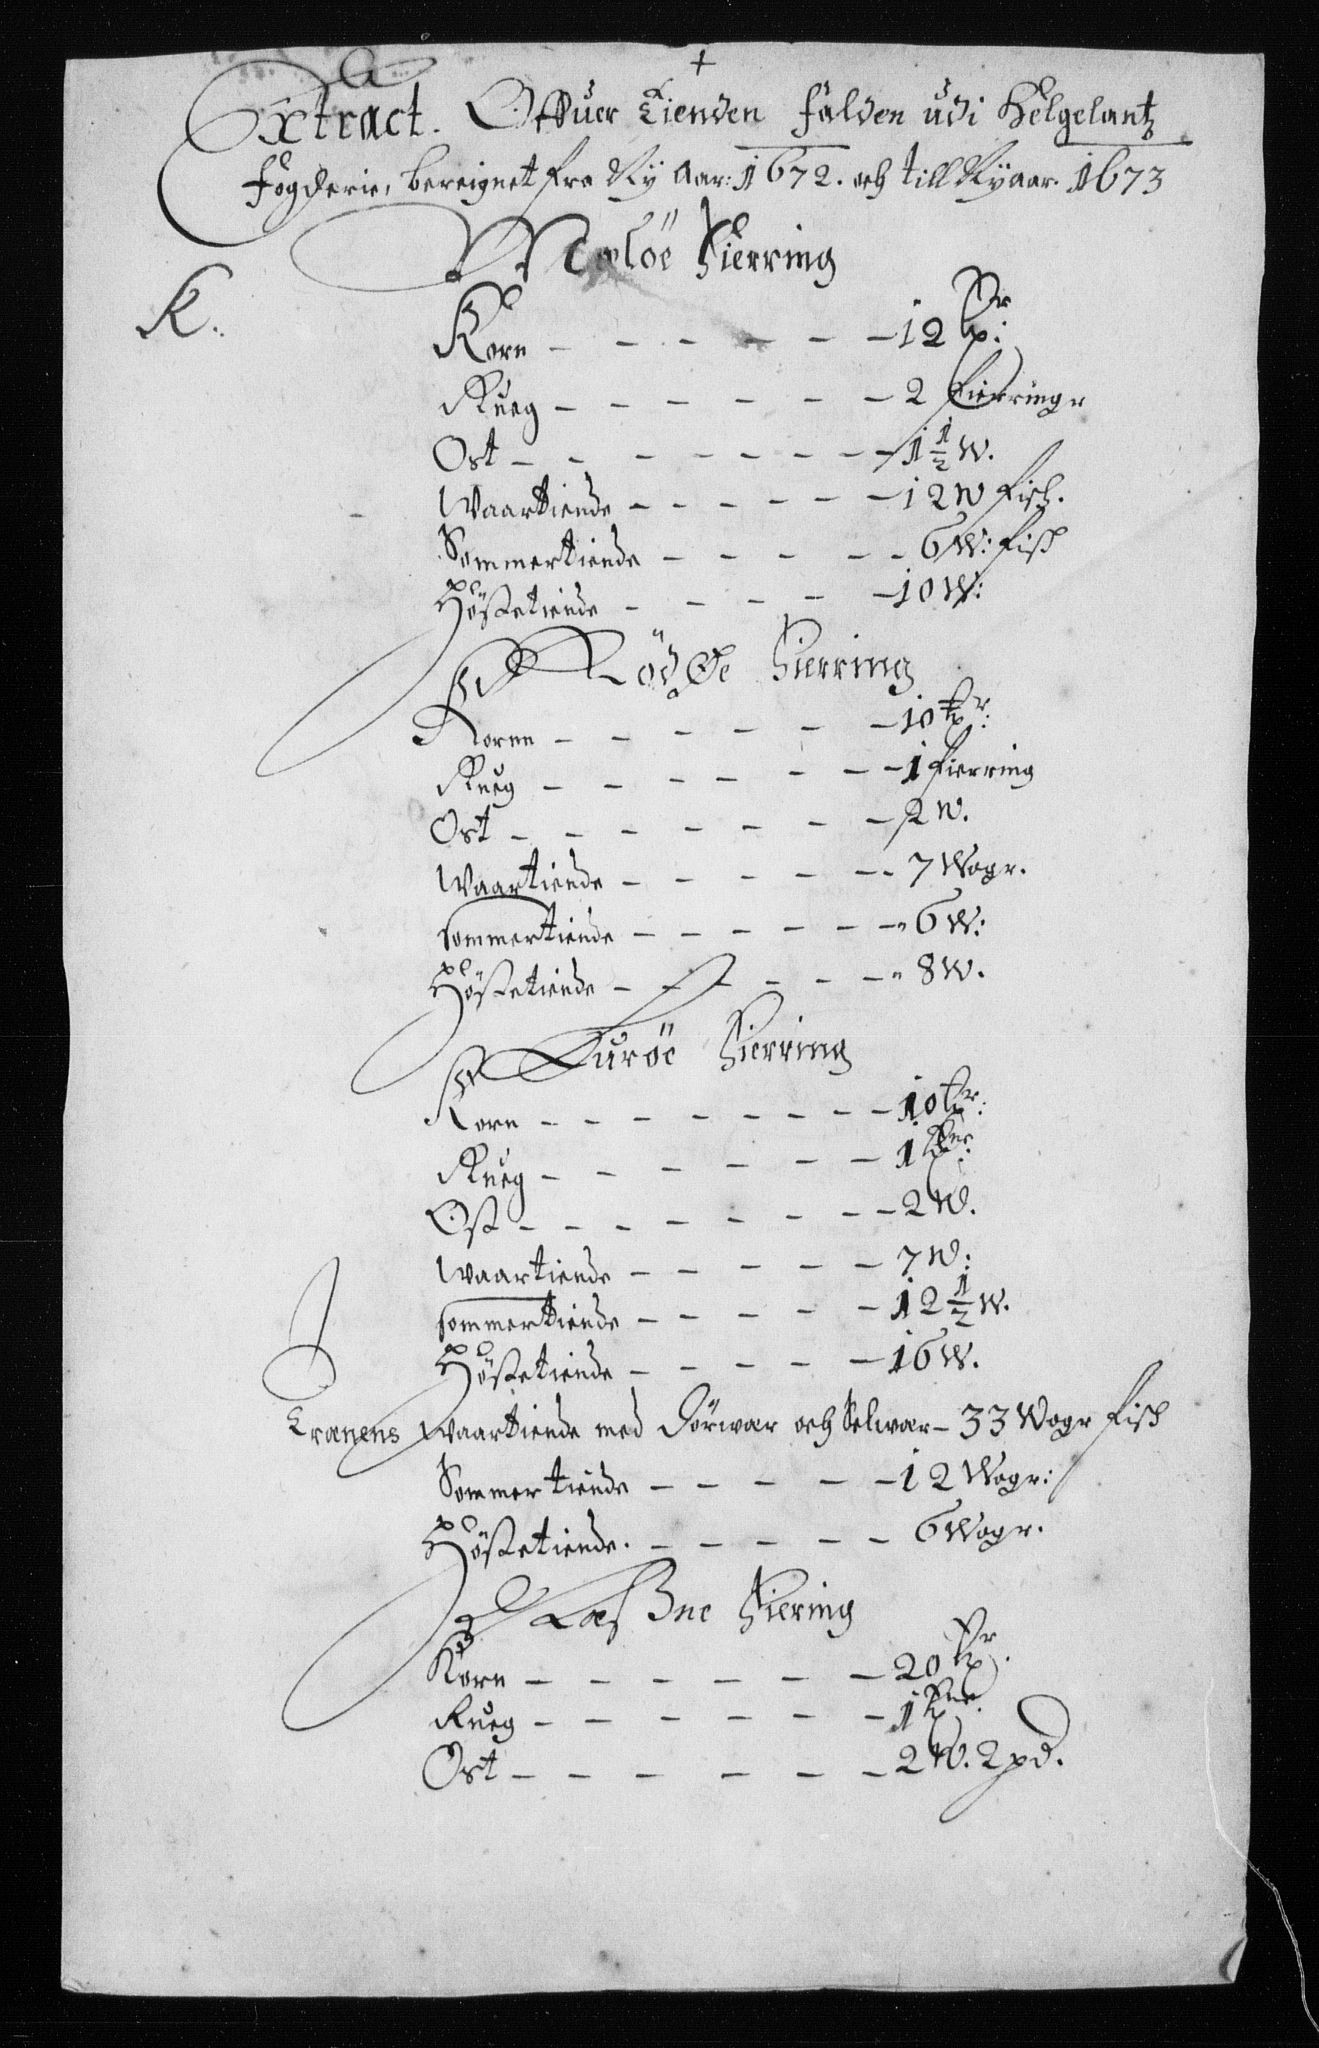 +
Extract. Offuer Tienden falden udi Helgelantz
fogderie, bereignet fra Ny Aar: 1672. och till Nyaar. 1673
Meløe Fierring
K.
Korn - - - - - - 12 tpr:
Rueg - - - - - - 2 fierringr
Ost - - - - - - - 1 1/2 W.
Waartiende - - - - - 12 W fisch.
Sommertiende - - - - - 6 W: fisch
Høstetiende - - - - - 10 W:
Rødøe Fierring
Kornn - - - - - - 10 tpr:
Rueg - - - - - - - 1 fierring
Ost - - - - - - - 2 W.
Waartiende - - - - - - 7 Wogr.
Sommertiende - - - - - - 6 W:
Høstetiende - - - - - - 8 W.
Lurøe Fierring
Korn - - - - - - - - 10 tpr:
Rueg - - - - - - - 1
Ost - - - - - - - - 2 W.
Waartiende - - - - - 7 W:
Sommertiende - - - - - 12 1/2 W.
Høstetiende - - - - - 16 W.
Tranens Waartiende med Dørwær och Selwær - 33 Wogr fisch
Sommertiende - - - - - 12 Wogr:
Høstetiende. - - - - - 6 Wogr.
Næssne Fiering
Korn - - - - - - 20 tpr.
Rueg - - - - - - - 1
Ost - - - - - - - 2 W. 2 pd.